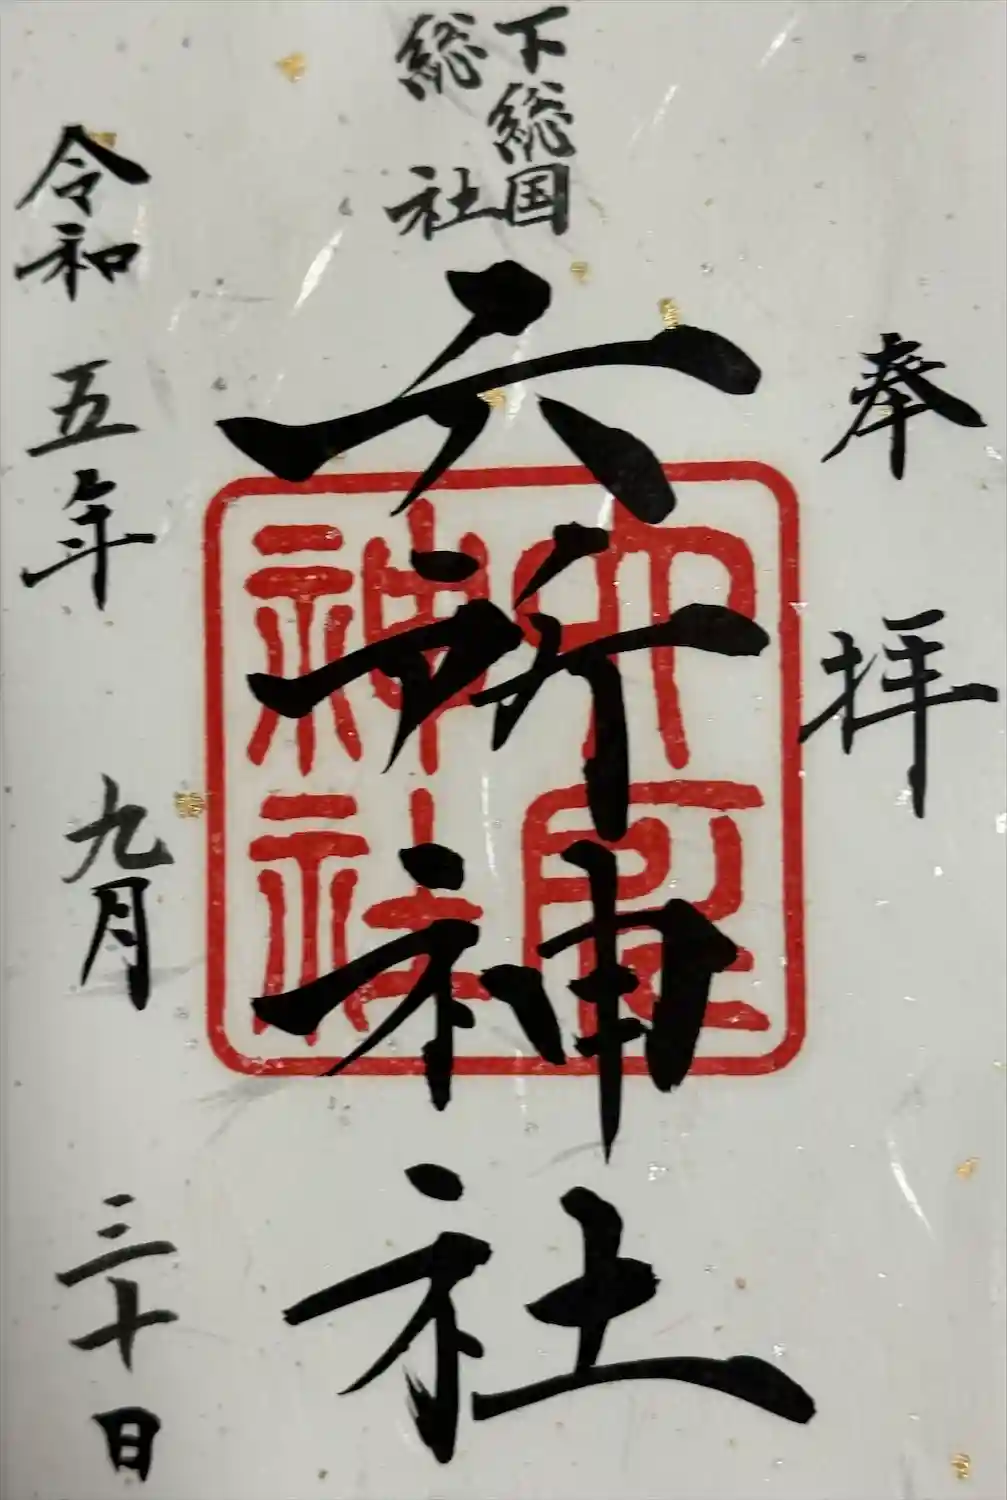 奉拝
下総国
総社
六所神社
六所神社
令和五年九月三十日